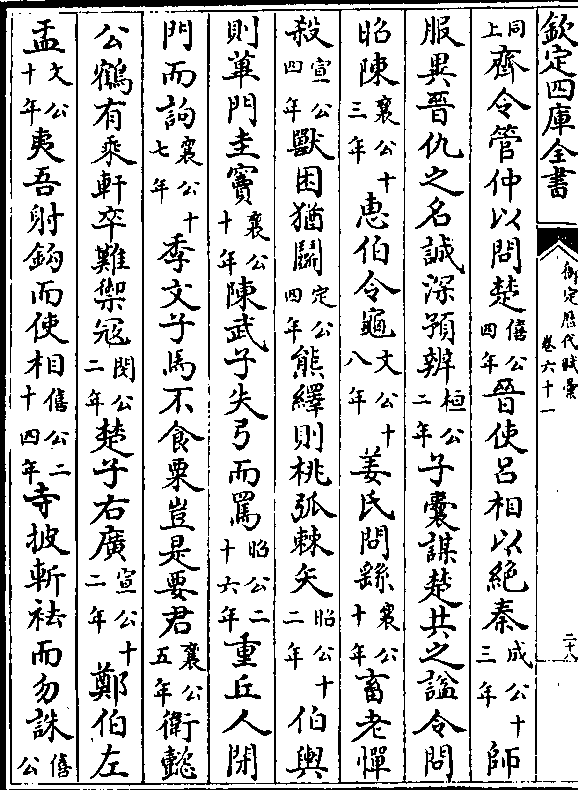 欽定四庫全書
御定歷代賦彙
卷六十一
二十八
同上齊令管仲以問楚僖公四年晉使呂相以絕秦成公十三年師
服異晉仇之名誠深預辨桓公二年子囊謀楚共之諡令問
昭陳襄公十三年惠伯令龜文公十八年姜氏問繇襄公十年畜老憚
殺宣公四年獸困猶鬭定公四年熊繹則桃弧棘矢昭公十二年伯輿
則蓽門圭竇襄公十年陳武子失弓而罵昭公二十六年重丘人閉
門而訽襄公十七年季文子馬不食粟豈是要君襄公五年衛懿
公鶴有乘軒卒難禦寇閔公二年楚子右廣宣公十二年鄭伯左
盂文公十年夷吾射鉤而使相僖公二十四年寺披斬袪而勿誅僖公